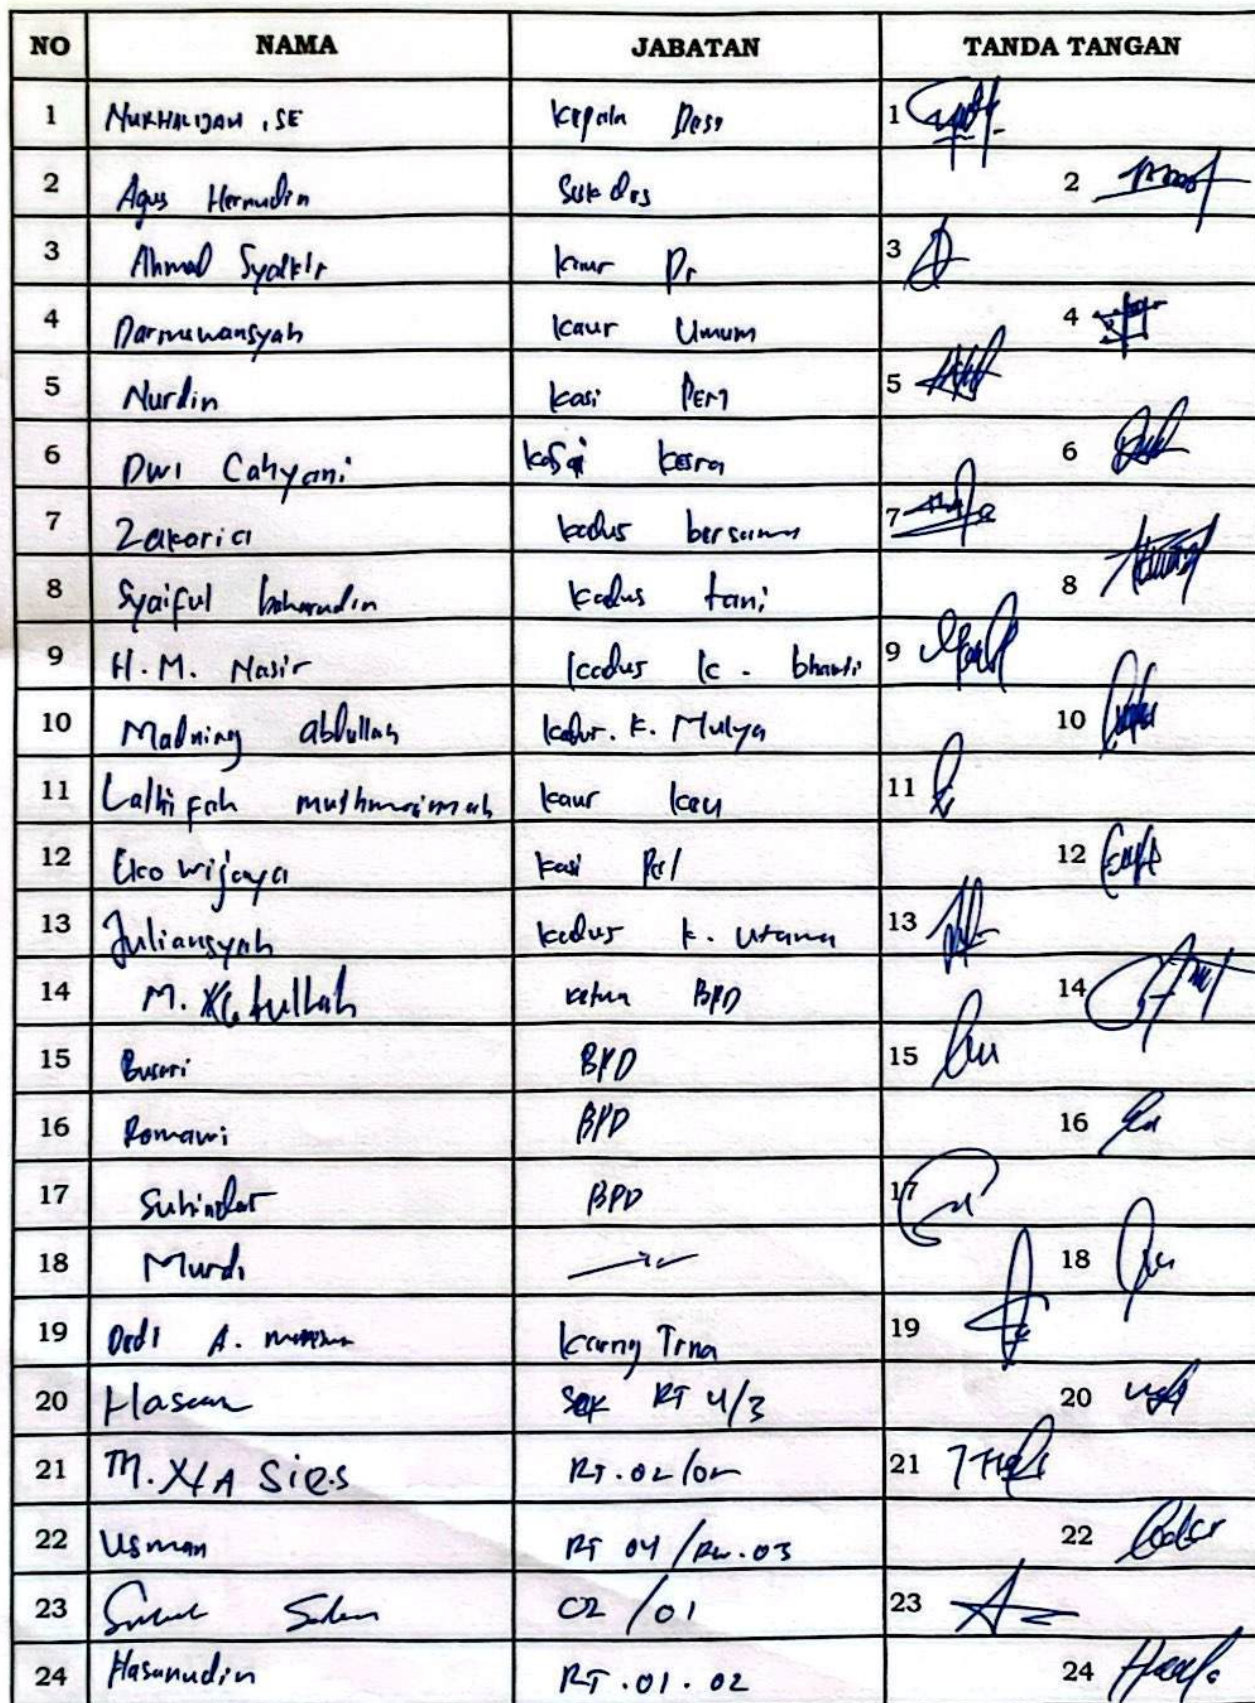 NO NAMA JABATAN TANDA TANGAN
1 NURHALIJAH, SE Kepala Desa 1
2 Agus Hernudin Sekdes 2
3 Ahmad Syakir kaur Pr 3
4 Darmawansyah kaur Umum 4
5 Nurdin kasi PEM 5
6 Dwi Cahyani kasi kesra 6
7 Zakaria kadus bersama 7
8 Syaiful baharudin kadus tani 8
9 H. M. Nasir kadus k. bhakti 9
10 Madning abdullah kadus. K. Mulya 10
11 Lathifah muthmainnah kaur keu 11
12 Eko wijaya kasi Pel 12
13 Juliansyah kadus k. utama 13
14 M. ketua BPD 14
15 Busari BPD 15
16 Romawi BPD 16
17 Suhindar BPD 17
18 Murdi 18
19 Dedi A. karng Trna 19
20 Hasan sek RT 4/3 20
21 M. RT. 02/02 21
22 Usman RT 04/RW. 03 22
23 02/01 23
24 Hasanudin RT. 01. 02 24